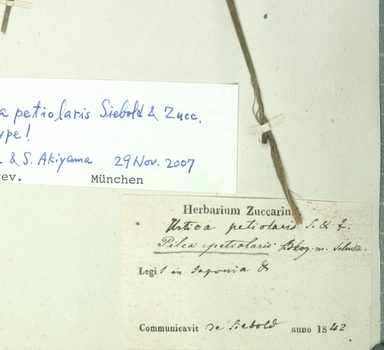 a petiolaris Siebold & Zucc.
ype!
. & S. Akiyama 29 Nov. 2007
ev. München
Herbarium Zuccarini
Urtica petiolaris S. & Z.
Pilea petiolaris
Legit in Japonia
Communicavit de Siebold anno 1842